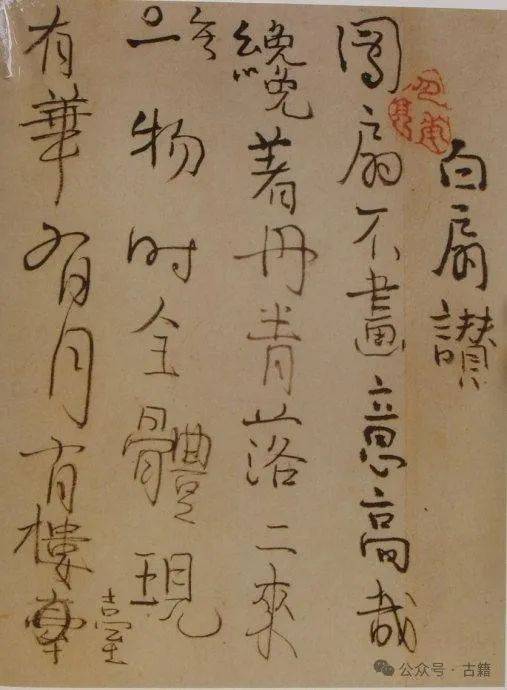 白扇讃
團扇不畫意高哉
纔著丹青落二來
無一物時全體現
有華有月有樓臺
公众号 · 古籍